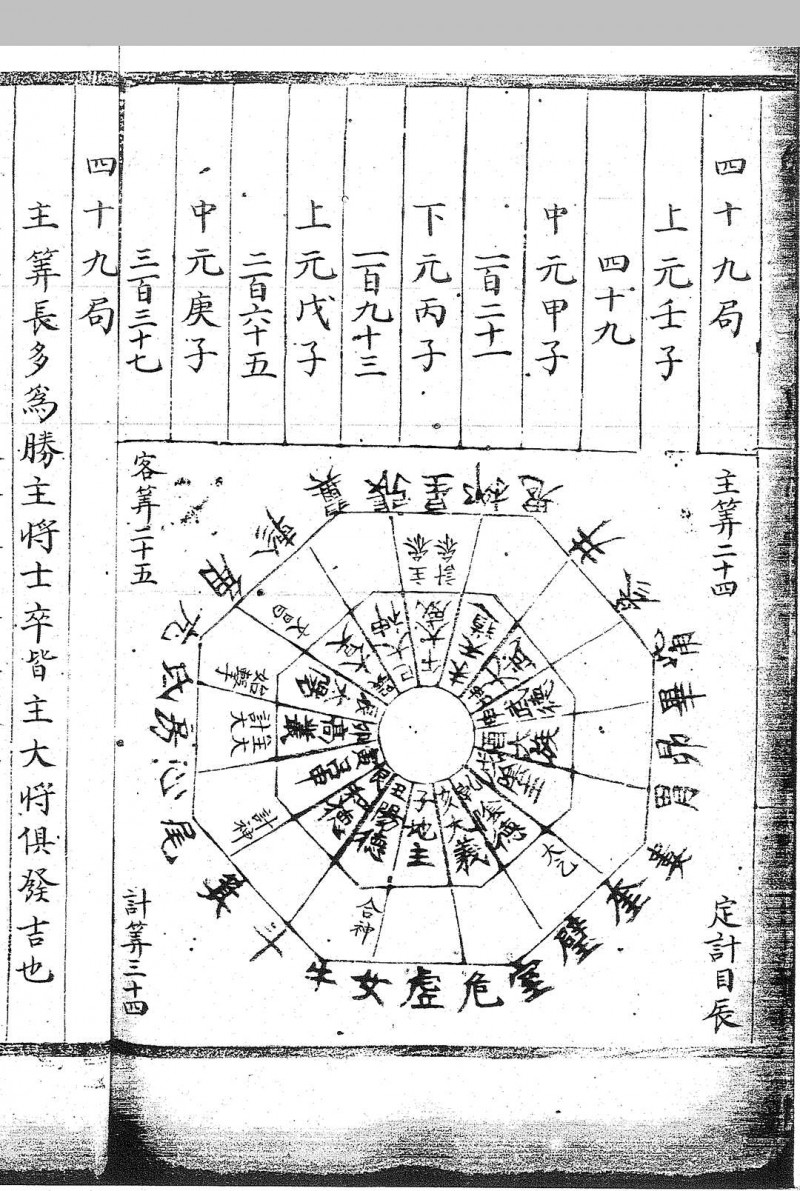 四十九局
上元壬子
四十九
中元甲子
一百二十一
下元丙子
一百九十三
上元戊子
二百六十五
中元庚子
三百三十七
主筭二十四
定計目辰
客筭二十五
計筭三十四
角
亢
氐
房
心
尾
箕
斗
牛
女
虛
危
室
壁
奎
婁
胃
昴
畢
井
鬼
柳
星
張
翼
軫
主參
計參
文昌
始擊
主大
計大
計神
合神
太乙
午大威
巳大神
卯高叢
寅呂申
艮和德
丑陽德
子地主
亥大義
四十九局
主筭長多為勝主將士卒皆主大將俱發吉也